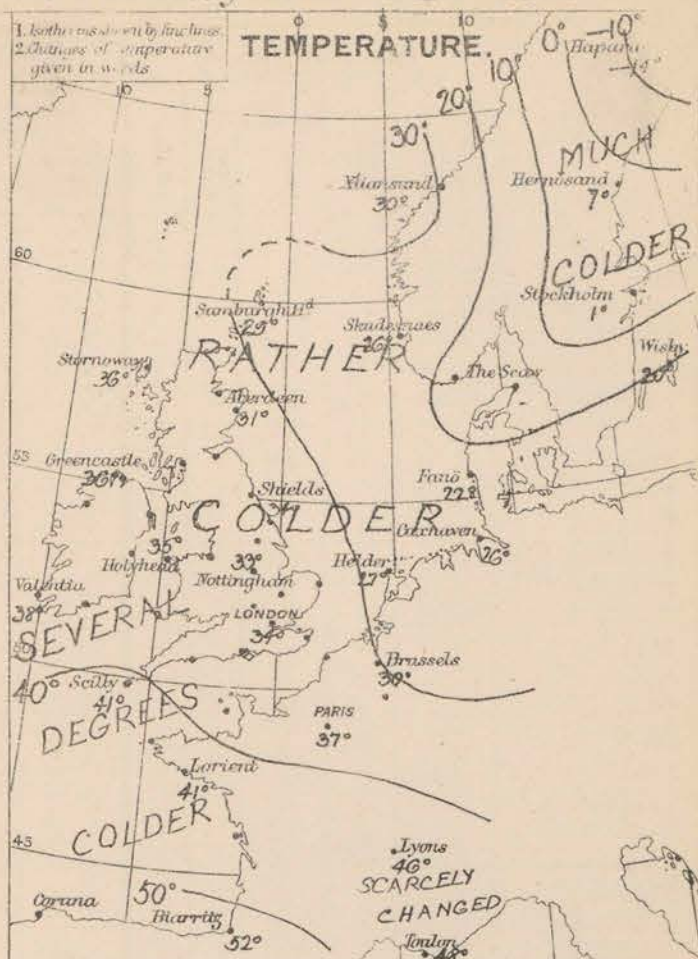 1. Isotherms shown by fine lines.
2. Changes of temperature
given in words
TEMPERATURE.
10
5
0
5
10
0°
-10°
Haparan
-14°
10°
20°
30°
MUCH
Xtiansund
30°
Hernösand
7°
COLDER
60
Stockholm
1°
Sumburgh Hd
29°
Skudesnaes
26°
Wisby
20°
Stornoway
36°
RATHER
The Scaw
Aberdeen
31°
55
Greencastle
Shields
Fanö
22°
COLDER
Cuxhaven
26°
35°
Holyhead
33°
Nottingham
Helder
27°
Valentia
38°
LONDON
34°
SEVERAL
Brussels
30°
40°
Scilly
41°
DEGREES
PARIS
37°
Lorient
41°
COLDER
45
Lyons
46°
SCARCELY
CHANGED
Coruna
50°
Biarritz
52°
Toulon
48°